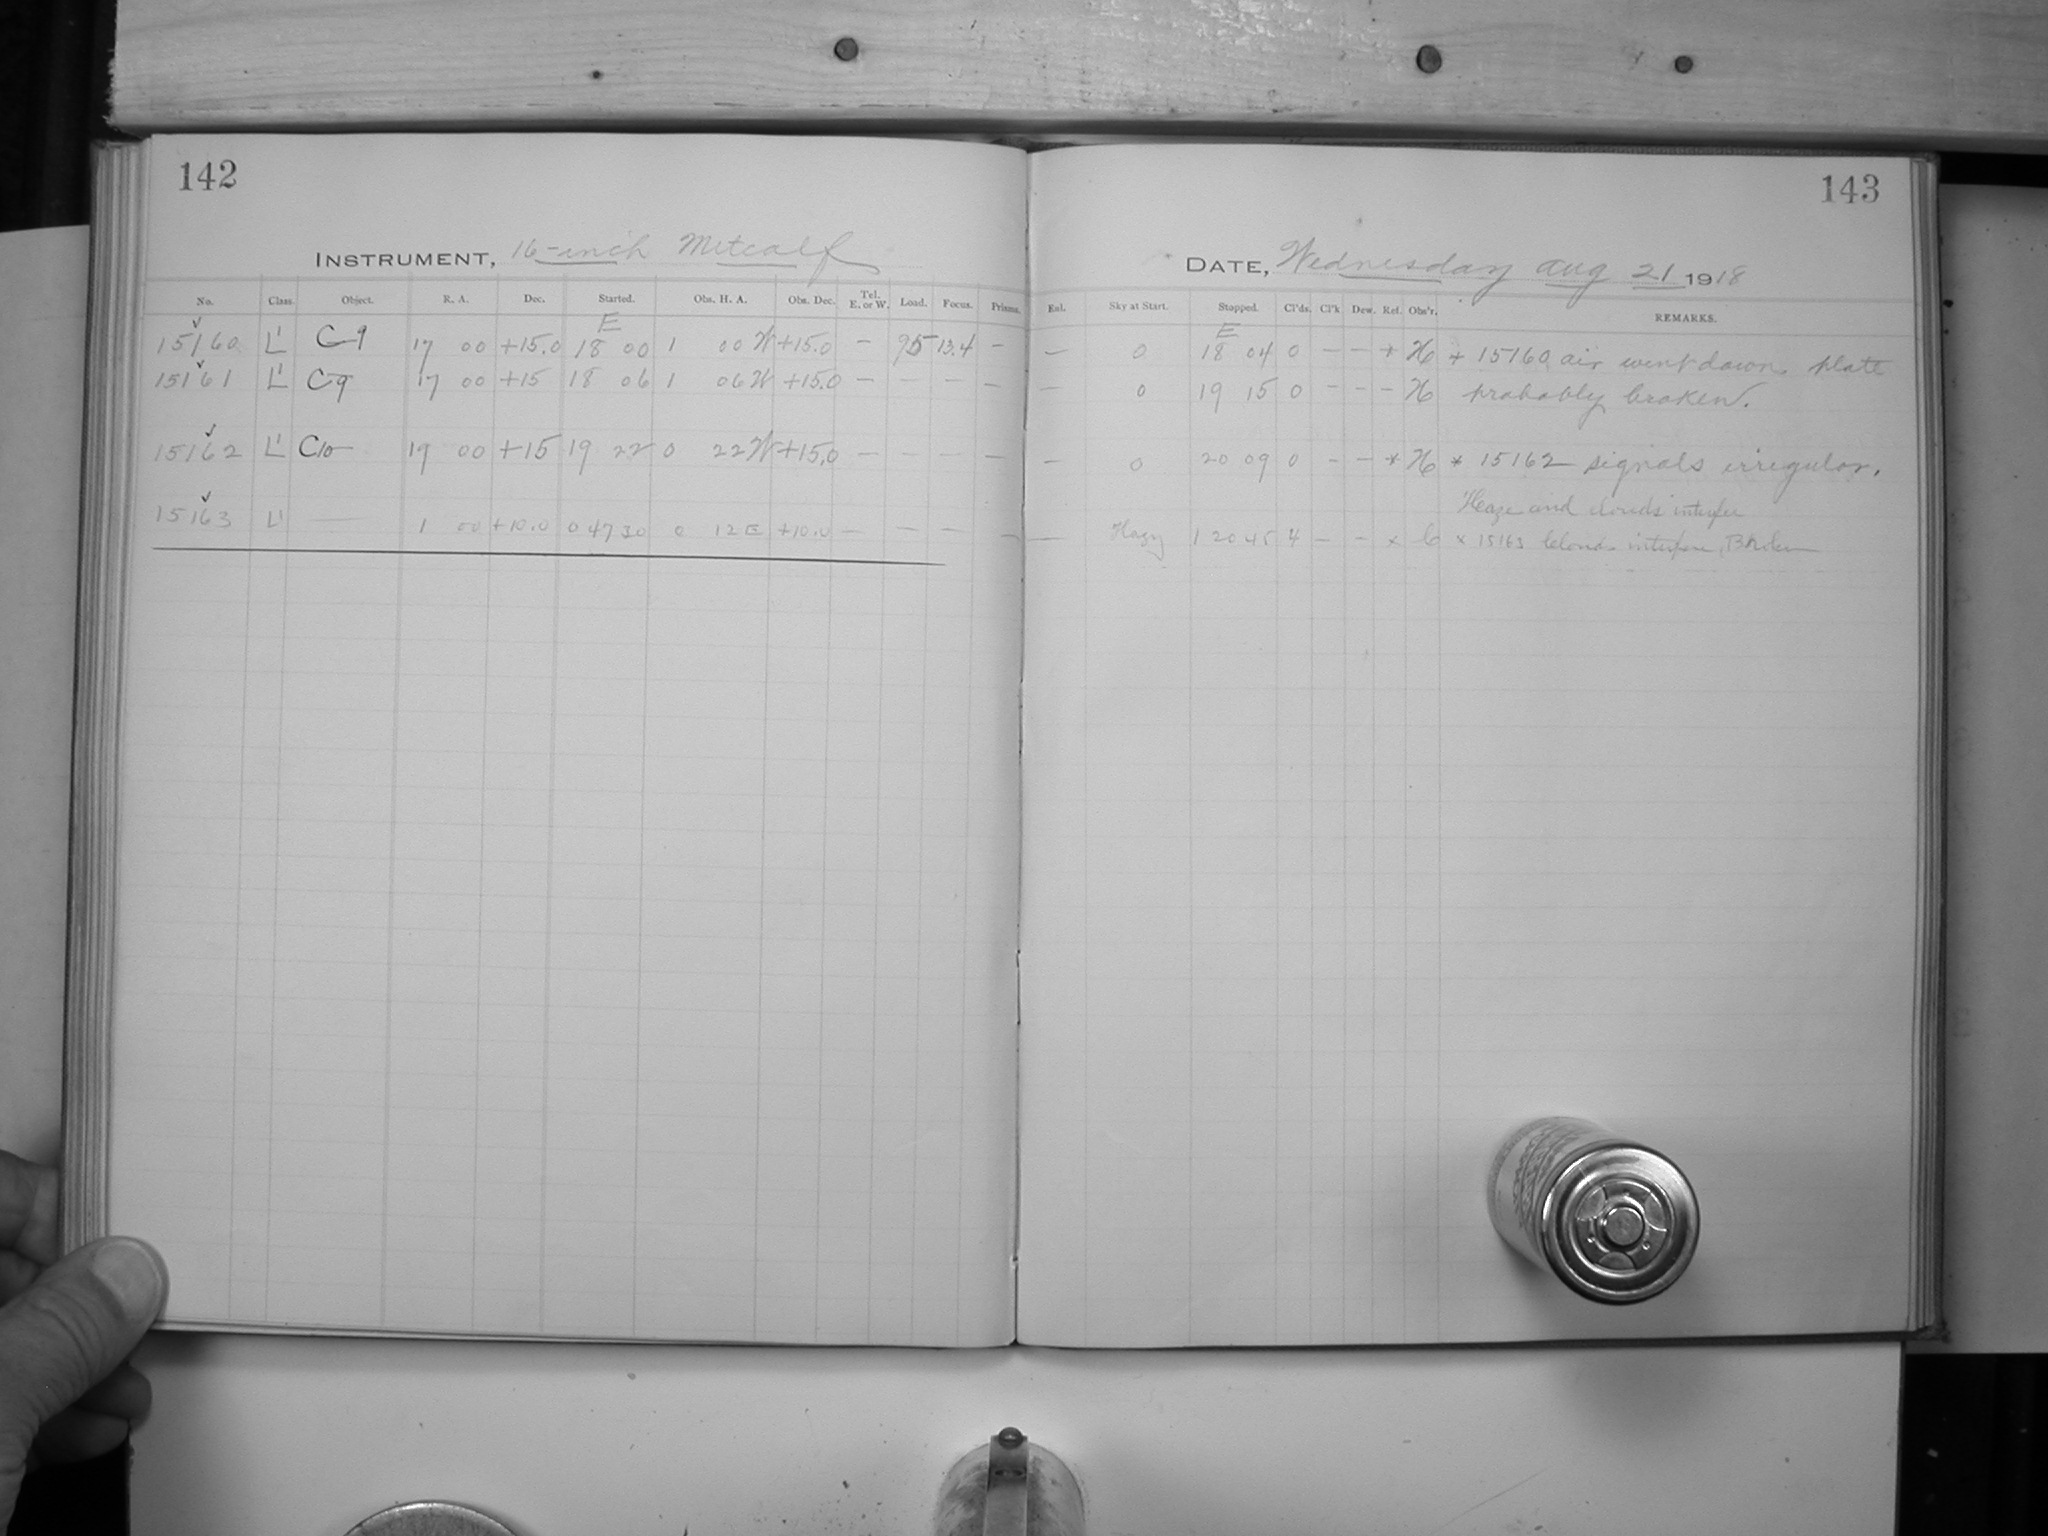 142
INSTRUMENT, 16-inch Metcalf
No. Class. Object. R. A. Dec. Started. Obs. H. A. Obs. Dec. Tel. E. or W. Load. Focus. Prisms.
E
15160 L' C9 17 00 +15.0 18 00 1 00 W +15.0 — 95 13.4 —
15161 L' C9 17 00 +15 18 06 1 06 W +15.0 — — — —
15162 L' C10 19 00 +15 19 22 0 22 W +15.0 — — — —
15163 L' — 1 00 +10.0 0 47 30 0 12 E +10.0 — — — —
143
DATE, Wednesday Aug 21 1918
Exl. Sky at Start. Stopped. Cl'ds. Cl'k Dew. Ref. Obs'r. REMARKS.
E
— 0 18 04 0 — — * H * 15160 air went down plate
— 0 19 15 0 — — — H probably broken.
— 0 20 09 0 — — * H * 15162 signals irregular.
Haze and clouds interfere
— Hazy 1 20 45 4 — — x C x 15163 Clouds interfere, Broken